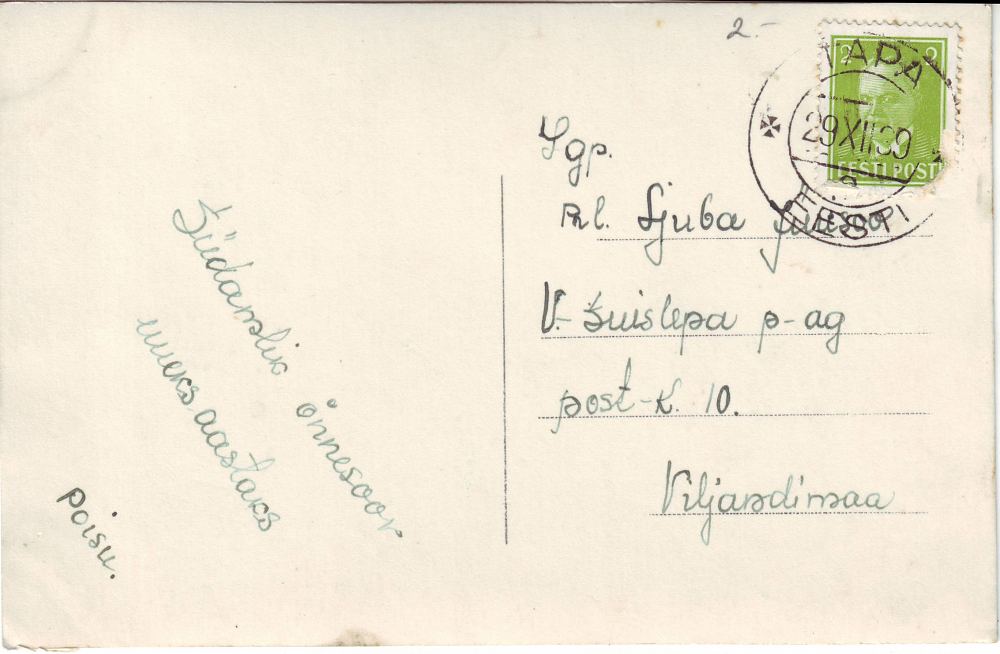 2.-
2 2
EESTI POST
TAPA
29 XII 39
EESTI
Lgp.
Prl. Ljuba
V.-Suislepa p-ag
post-k. 10.
Viljandimaa
Südamlik õnnesoov
uueks aastaks
poisu.